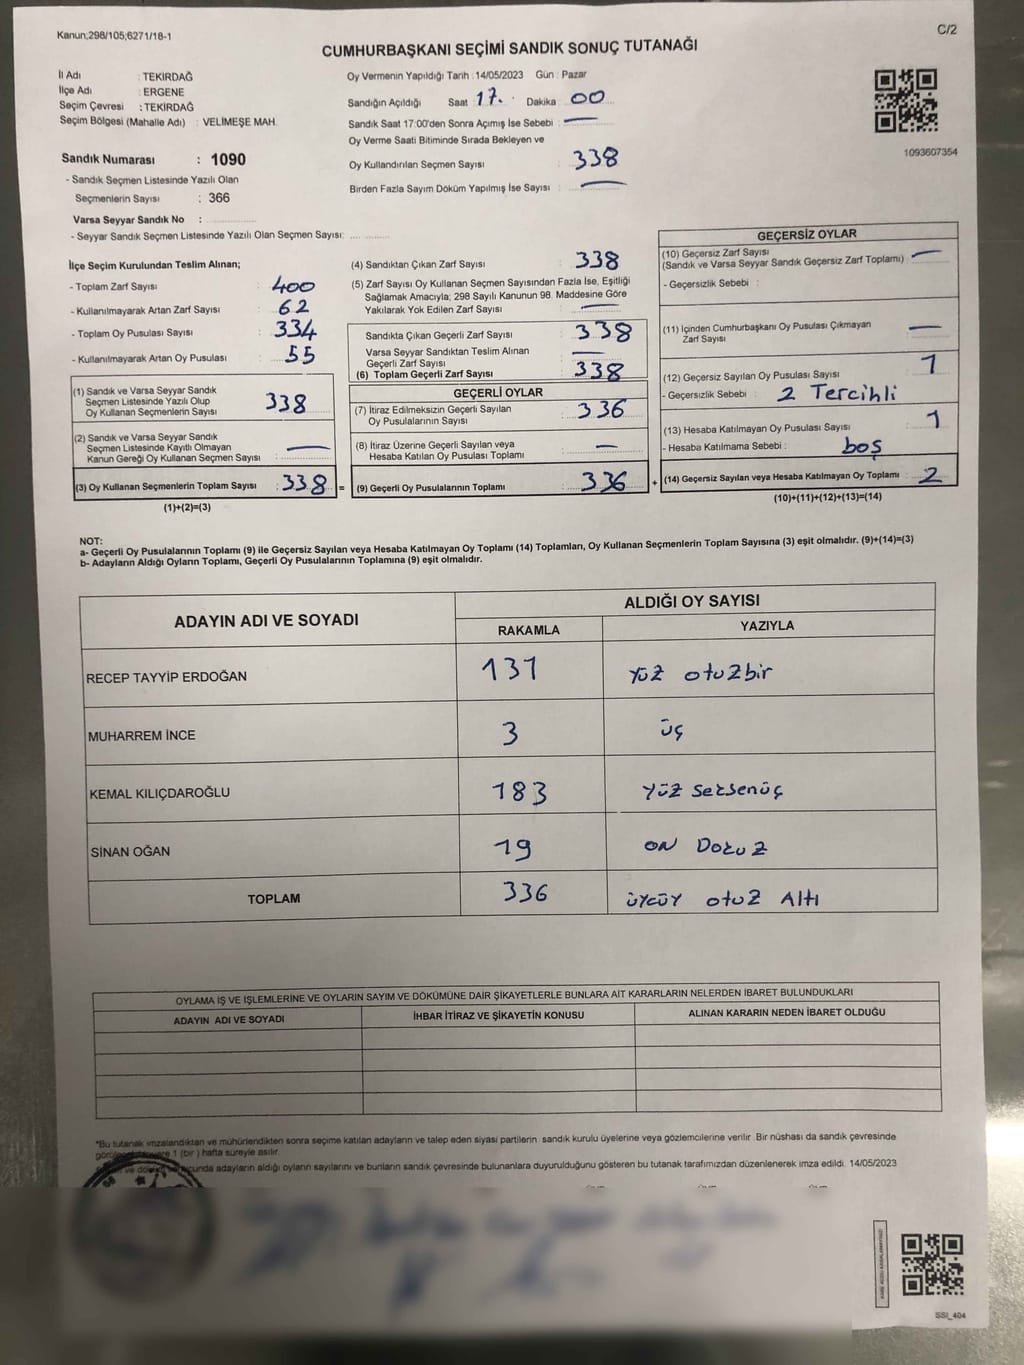 Kanun;298/105;6271/18-1
C/2
CUMHURBAŞKANI SEÇİMİ SANDIK SONUÇ TUTANAĞI
İl Adı : TEKİRDAĞ
İlçe Adı : ERGENE
Seçim Çevresi : TEKİRDAĞ
Seçim Bölgesi (Mahalle Adı) : VELİMEŞE MAH.
Sandık Numarası : 1090
- Sandık Seçmen Listesinde Yazılı Olan
Seçmenlerin Sayısı : 366
Varsa Seyyar Sandık No :
- Seyyar Sandık Seçmen Listesinde Yazılı Olan Seçmen Sayısı:
Oy Vermenin Yapıldığı Tarih : 14/05/2023 Gün : Pazar
Sandığın Açıldığı Saat 17. Dakika 00
Sandık Saat 17:00'den Sonra Açımış İse Sebebi : —
Oy Verme Saati Bitiminde Sırada Bekleyen ve
Oy Kullandırılan Seçmen Sayısı 338
Birden Fazla Sayım Döküm Yapılmış İse Sayısı : —
1093607354
İlçe Seçim Kurulundan Teslim Alınan;
- Toplam Zarf Sayısı : 400
- Kullanılmayarak Artan Zarf Sayısı : 62
- Toplam Oy Pusulası Sayısı : 334
- Kullanılmayarak Artan Oy Pusulası : 55
(1) Sandık ve Varsa Seyyar Sandık
Seçmen Listesinde Yazılı Olup
Oy Kullanan Seçmenlerin Sayısı : 338
(2) Sandık ve Varsa Seyyar Sandık
Seçmen Listesinde Kayıtlı Olmayan
Kanun Gereği Oy Kullanan Seçmen Sayısı : —
(3) Oy Kullanan Seçmenlerin Toplam Sayısı : 338 =
(1)+(2)=(3)
(4) Sandıktan Çıkan Zarf Sayısı : 338
(5) Zarf Sayısı Oy Kullanan Seçmen Sayısından Fazla İse, Eşitliği
Sağlamak Amacıyla; 298 Sayılı Kanunun 98. Maddesine Göre
Yakılarak Yok Edilen Zarf Sayısı : —
Sandıkta Çıkan Geçerli Zarf Sayısı : 338
Varsa Seyyar Sandıktan Teslim Alınan
Geçerli Zarf Sayısı : —
(6) Toplam Geçerli Zarf Sayısı : 338
GEÇERLİ OYLAR
(7) İtiraz Edilmeksizin Geçerli Sayılan
Oy Pusulalarının Sayısı : 336
(8) İtiraz Üzerine Geçerli Sayılan veya
Hesaba Katılan Oy Pusulası Toplamı : —
(9) Geçerli Oy Pusulalarının Toplamı : 336 +
GEÇERSİZ OYLAR
(10) Geçersiz Zarf Sayısı
(Sandık ve Varsa Seyyar Sandık Geçersiz Zarf Toplamı) : —
- Geçersizlik Sebebi :
(11) İçinden Cumhurbaşkanı Oy Pusulası Çıkmayan
Zarf Sayısı : —
(12) Geçersiz Sayılan Oy Pusulası Sayısı : 1
- Geçersizlik Sebebi : 2 Tercihli
(13) Hesaba Katılmayan Oy Pusulası Sayısı : 1
- Hesaba Katılmama Sebebi : boş
(14) Geçersiz Sayılan veya Hesaba Katılmayan Oy Toplamı : 2
(10)+(11)+(12)+(13)=(14)
NOT:
a- Geçerli Oy Pusulalarının Toplamı (9) ile Geçersiz Sayılan veya Hesaba Katılmayan Oy Toplamı (14) Toplamları, Oy Kullanan Seçmenlerin Toplam Sayısına (3) eşit olmalıdır. (9)+(14)=(3)
b- Adayların Aldığı Oyların Toplamı, Geçerli Oy Pusulalarının Toplamına (9) eşit olmalıdır.
ADAYIN ADI VE SOYADI
ALDIĞI OY SAYISI
RAKAMLA YAZIYLA
RECEP TAYYİP ERDOĞAN 131 Yüz otuzbir
MUHARREM İNCE 3 üç
KEMAL KILIÇDAROĞLU 183 Yüz seksenüç
SİNAN OĞAN 19 ON Dokuz
TOPLAM 336 üYcüY otuz Altı
OYLAMA İŞ VE İŞLEMLERİNE VE OYLARIN SAYIM VE DÖKÜMÜNE DAİR ŞİKAYETLERLE BUNLARA AİT KARARLARIN NELERDEN İBARET BULUNDUKLARI
ADAYIN ADI VE SOYADI İHBAR İTİRAZ VE ŞİKAYETİN KONUSU ALINAN KARARIN NEDEN İBARET OLDUĞU
*Bu tutanak imzalandıktan ve mühürlendikten sonra seçime katılan adayların ve talep eden siyasi partilerin sandık kurulu üyelerine veya gözlemcilerine verilir. Bir nüshası da sandık çevresinde
1 (bir) hafta süreyle asılır.
adayların aldığı oyların sayılarını ve bunların sandık çevresinde bulunanlara duyurulduğunu gösteren bu tutanak tarafımızdan düzenlenerek imza edildi. 14/05/2023
SSI_404